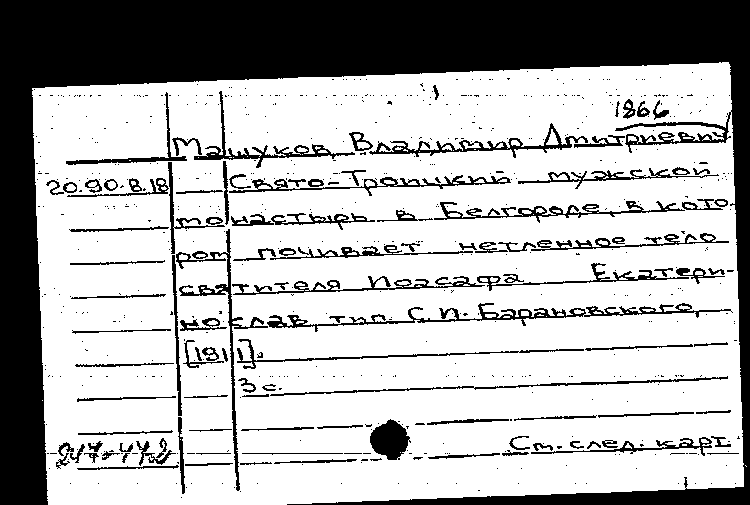 1866
Машуков, Владимир Дмитриевич
20.90.8.18 Свято-Троицкий мужской
монастырь в Белгороде, в кото-
ром почивает нетленное тело
святителя Иоасафа Екатери-
нослав, тип. С. И. Барановского,
[1911].
3 с.
247-47-2 См. след. карт.